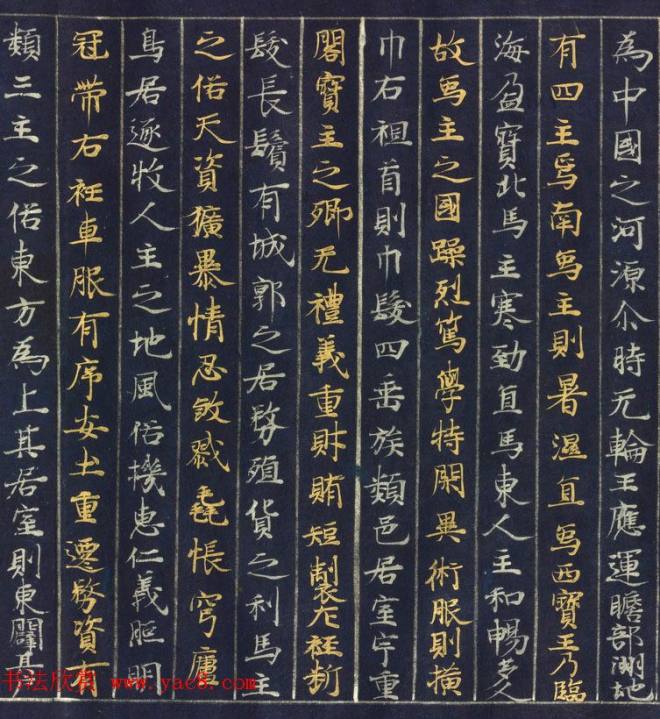 為中國之河源尒時无輪王應運瞻部洲地
有四主焉南烏主則暑濕宜烏西寶主乃臨
海盈寶北馬主寒勁宜馬東人主和暢多人
故烏主之國躁烈篤學特閑異術服則橫
巾右袒首則巾髮四垂族類邑居室宇重
閣寶主之鄉无禮義重財賄短製左衽斷
髮長鬚有城郭之居務殖貨之利馬主
之俗天資獷暴情忍煞戮毳帳穹廬
鳥居逐牧人主之地風俗機惠仁義照明
冠帶右衽車服有序安土重遷務資有
類三主之俗東方為上其居室則東闢其
书法欣赏 www.yac8.com